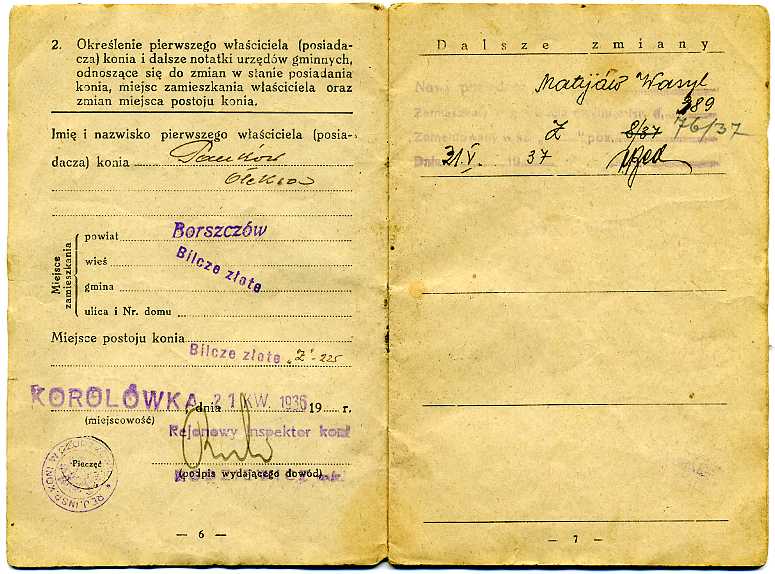 2. Określenie pierwszego właściciela (posiada-
cza) konia i dalsze notatki urzędów gminnych,
odnoszące się do zmian w stanie posiadania
konia, miejsc zamieszkania właściciela oraz
zmian miejsca postoju konia.
Imię i nazwisko pierwszego właściciela (posia-
dacza) konia
Miejsce zamieszkania
powiat Borszczów
wieś Bilcze złote
gmina
ulica i Nr. domu
Miejsce postoju konia
Bilcze złote „Z"-225
KOROLÓWKA, dnia 21 KW. 1936 19 r.
(miejscowość)
Rejonowy Inspektor koni
Pieczęć
(podpis wydającego dowód)
— 6 —
Dalsze zmiany
Matijów Wasyl
389
Z 8/37 76/37
Dnia 21 V. 1937
— 7 —